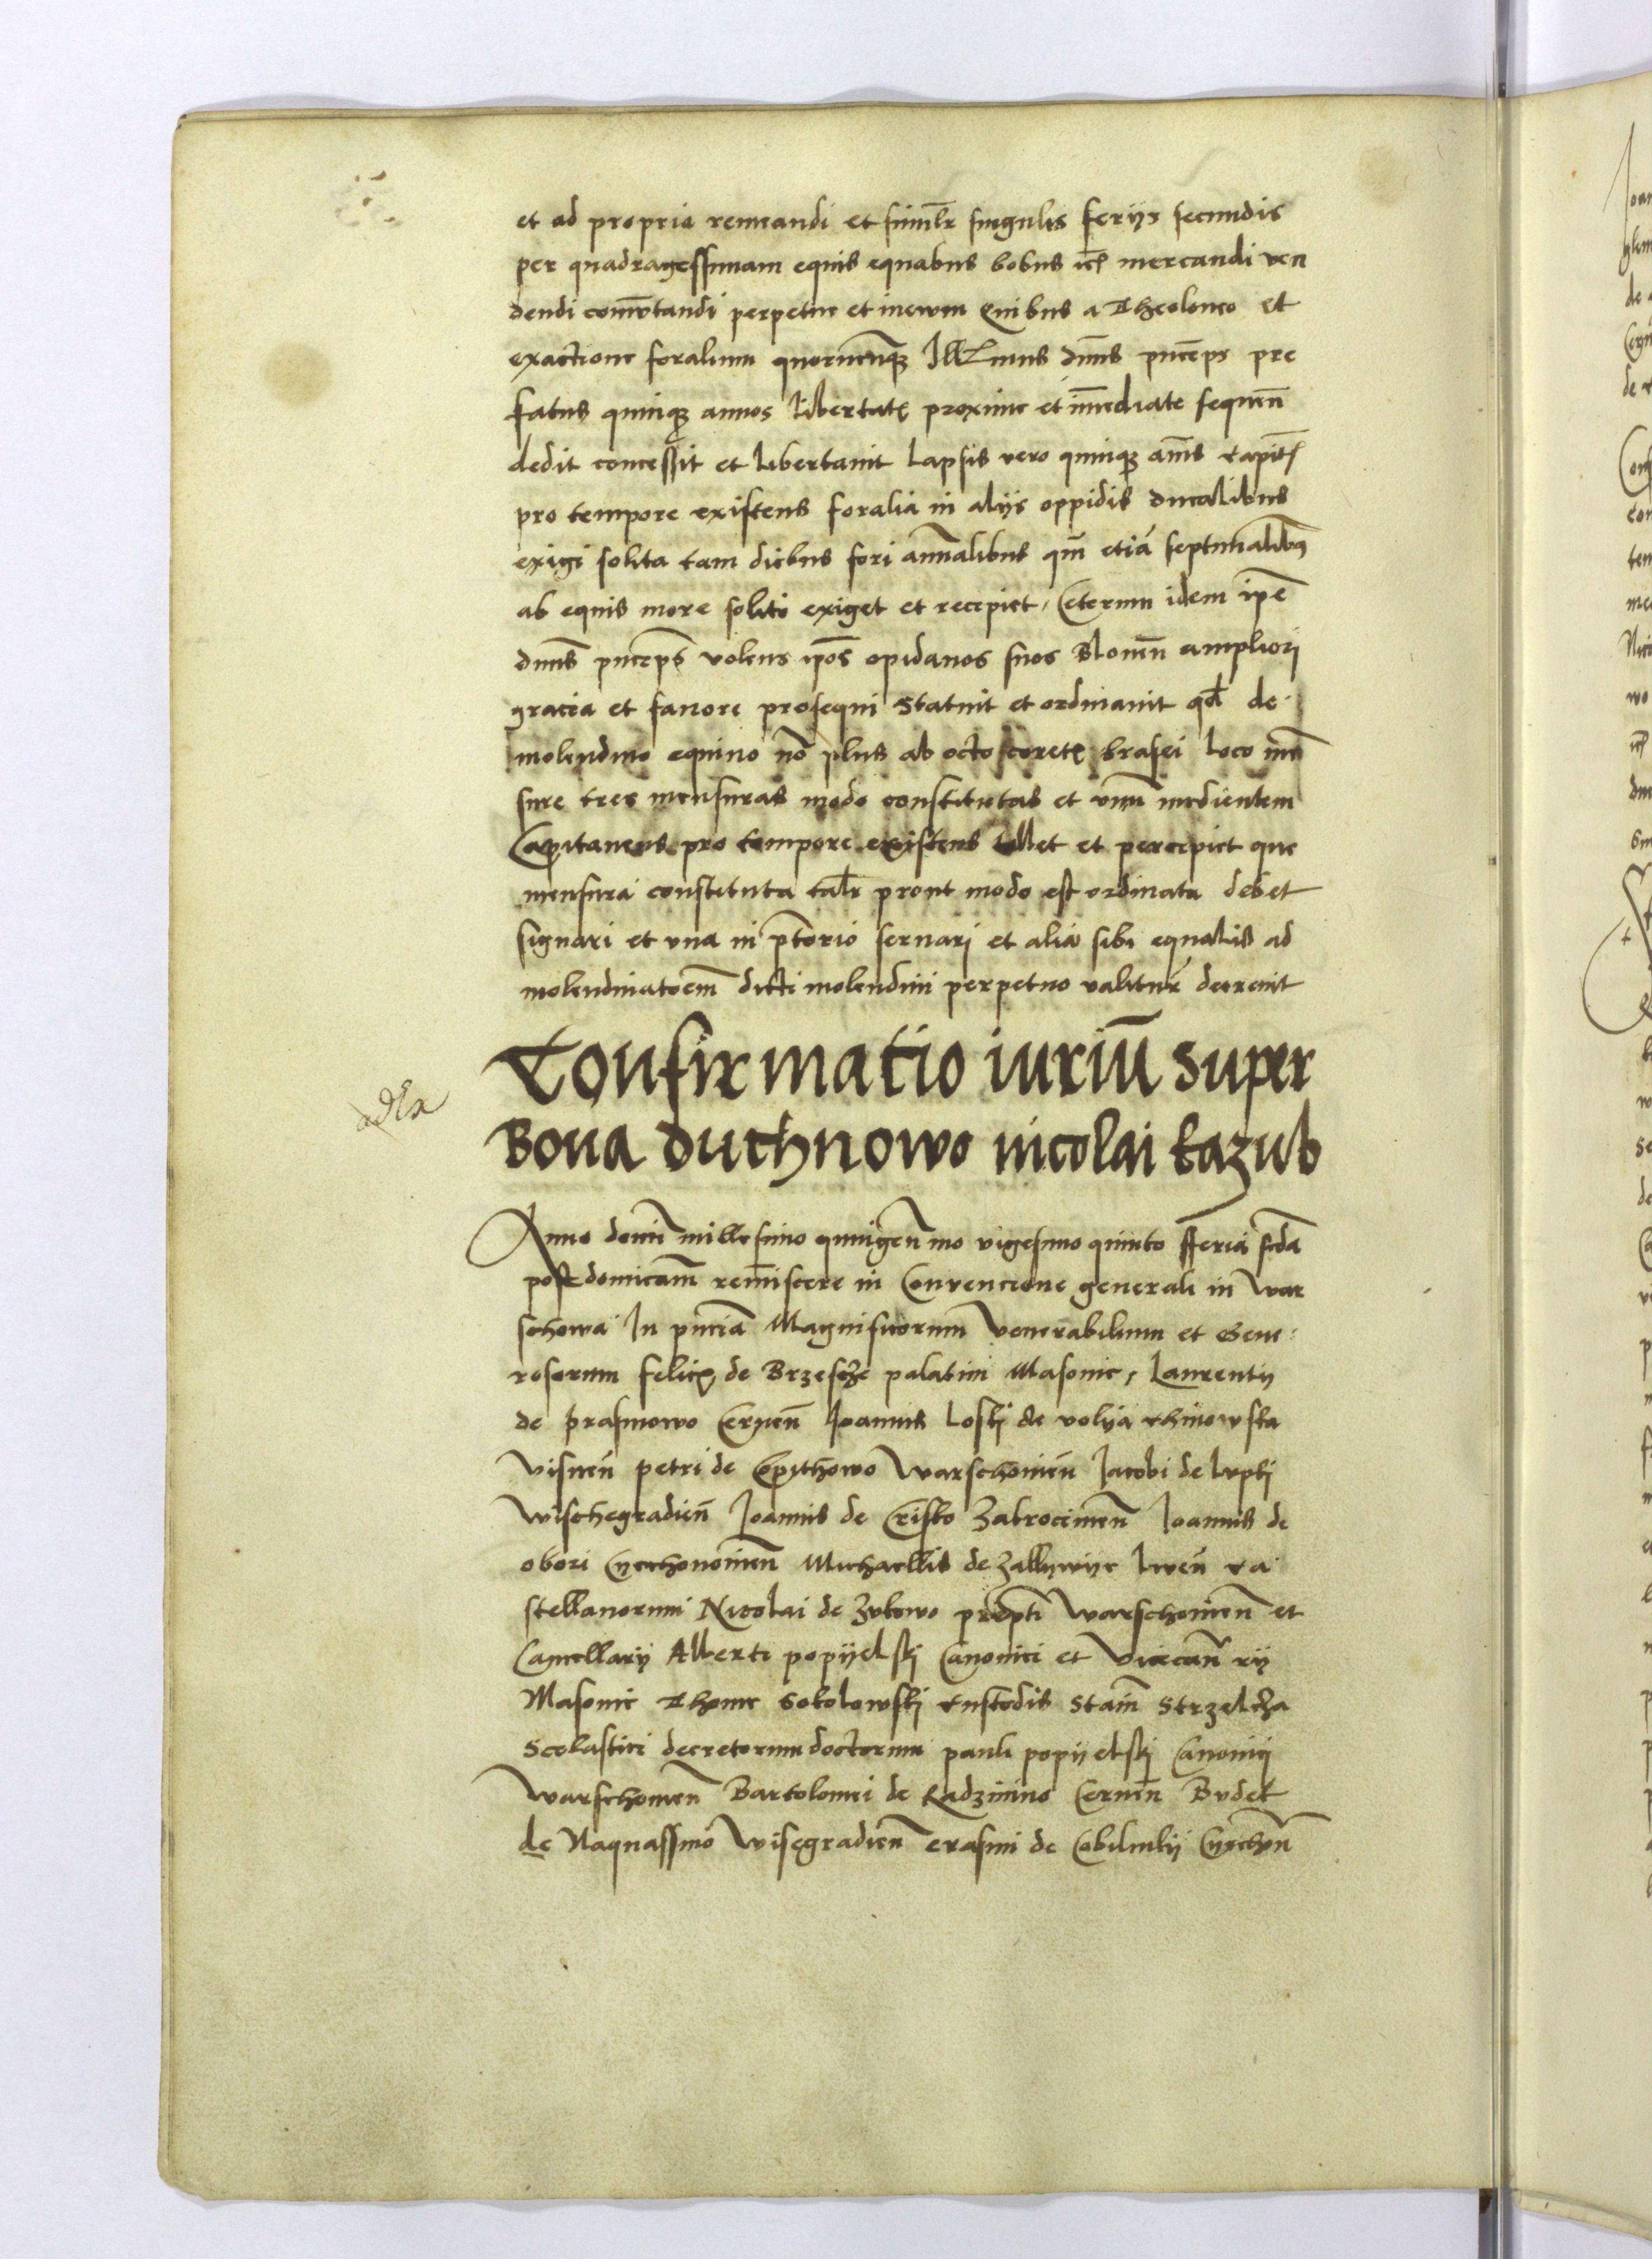 et ad propria remeandi et simlr singulis ferijs secundis
per quadragessimam equis equabus bobus mercandi ven
dendi comutandi perpetue et inevum Quibus a Theoloneo et
exactione foralium quorucunqz Illmus dnus pnceps pre
fatus quinqz annos libertatis proxime et imediate sequen
dedit concessit et libertauit Lapsis vero quinqz annis
pro tempore existens foralia in alijs oppidis ducalibus
exigi solita tam diebus fori annalibus qm etia septimalibus
ab equis more solito exiget et recepiet, Ceterum idem ipe
dnus pnceps volens ipos opidanos suos Blonen ampliori
gracia et fauore prosequi Statuit et ordinauit qd de
molendino equino no plus ab octo coretis brasei loco men
sure tres mensuras modo constitutas et vnu medientem
Capitaneus pro tempore existens tollet et percepiet que
mensura constituta talr prout modo est ordinata debet
signari et vna in ptorio seruari et alia sibi equalis ad
molendinatorem dicti molendini perpetuo valitur decreuit
Confirmatio iuriu super
Bona duchnowo nicolai kazub
Anno domi millesimo quingenmo vigesimo quinto fferia scda
post domicam remiscere in Conuencione generali in War
schowa In pncia Magnificorum Venerabilium et Gene
rosorum felicis de Brzesche palatini Masouie, Laurentij
de prasmowo Cernen Joannis Loski de volija chinowska
Visnen petri de Copithowo Warschouien Jacobi de lupki
Wischegradien Joannis de Crisko Zakrocimen Joannis de
obori Cyechonouien Michaellis de Zallywije liuen ca
stellanorum Nicolai de Zukowo prepti Warschouien et
Cancellarij Alberti popijelski Canonici et Vicecanrij
Masouie Thome Sokolowski custodis Stain Strzelcza
Scolastici decretorum doctorum pauli popijelski Canonici
Warschouien Bartolomei de Radzimino Cernen Budek
de Naquassino Wisegradien erasmi de Cobilnikij Cyechon